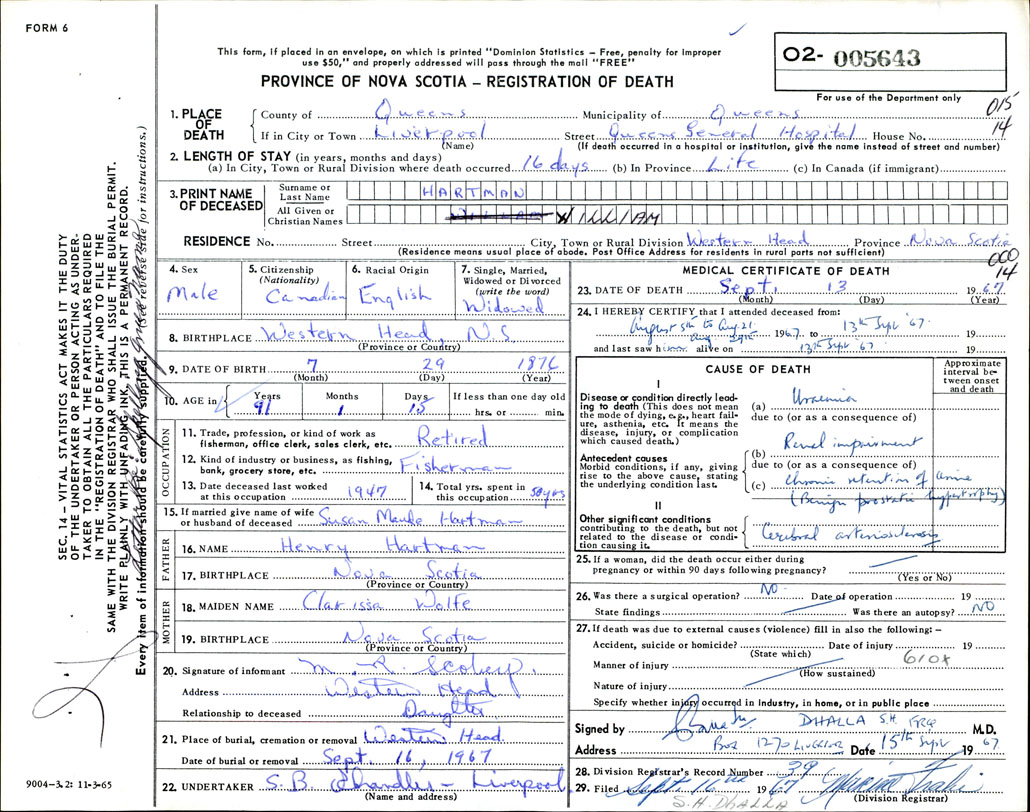 FORM 6
This form, if placed in an envelope, on which is printed "Dominion Statistics – Free, penalty for improper
use $50," and properly addressed will pass through the mail "FREE"
PROVINCE OF NOVA SCOTIA – REGISTRATION OF DEATH
02- 005643
For use of the Department only
015
14
1. PLACE OF DEATH
County of Queens Municipality of Queens
If in City or Town Liverpool Street Queens General Hospital House No.
(Name) (If death occurred in a hospital or institution, give the name instead of street and number)
2. LENGTH OF STAY (in years, months and days)
(a) In City, Town or Rural Division where death occurred 16 days (b) In Province Life (c) In Canada (if immigrant)
3. PRINT NAME OF DECEASED
Surname or Last Name HARTMAN
All Given or Christian Names WILLIAM
RESIDENCE No. Street City, Town or Rural Division Western Head Province Nova Scotia
(Residence means usual place of abode. Post Office Address for residents in rural parts not sufficient)
000
14
4. Sex
Male
5. Citizenship
(Nationality)
Canadian
6. Racial Origin
English
7. Single, Married,
Widowed or Divorced
(write the word)
Widowed
8. BIRTHPLACE Western Head, N.S
(Province or Country)
9. DATE OF BIRTH 7 29 1876
(Month) (Day) (Year)
10. AGE in
Years Months Days If less than one day old
91 1 15 hrs. or min.
OCCUPATION
11. Trade, profession, or kind of work as
fisherman, office clerk, sales clerk, etc. Retired
12. Kind of industry or business, as fishing,
bank, grocery store, etc. Fisherman
13. Date deceased last worked
at this occupation 1947
14. Total yrs. spent in
this occupation 50 yrs
15. If married give name of wife
or husband of deceased Susan Maude Hartman
FATHER
16. NAME Henry Hartman
17. BIRTHPLACE Nova Scotia
(Province or Country)
MOTHER
18. MAIDEN NAME Clarissa Wolfe
19. BIRTHPLACE Nova Scotia
(Province or Country)
20. Signature of informant M. R.
Address Western Head
Relationship to deceased Daughter
21. Place of burial, cremation or removal Western Head.
Date of burial or removal Sept. 16, 1967
22. UNDERTAKER S.B. Chandler – Liverpool
(Name and address)
MEDICAL CERTIFICATE OF DEATH
23. DATE OF DEATH Sept. 13 1967
(Month) (Day) (Year)
24. I HEREBY CERTIFY that I attended deceased from:
August 5th to Aug. 21
1967 to 13th Sept '67. 19
and last saw h alive on 13th Sept '67 19
CAUSE OF DEATH
Approximate
interval be-
tween onset
and death
I
Disease or condition directly lead-
ing to death (This does not mean
the mode of dying, e.g., heart fail-
ure, asthenia, etc. It means the
disease, injury, or complication
which caused death.)
(a) Uraemia
due to (or as a consequence of)
Antecedent causes
Morbid conditions, if any, giving
rise to the above cause, stating
the underlying condition last.
(b) Renal impairment
due to (or as a consequence of)
(c) Chronic retention of urine
(Benign prostatic hypertrophy)
II
Other significant conditions
contributing to the death, but not
related to the disease or condi-
tion causing it.
Cerebral arteriosclerosis
25. If a woman, did the death occur either during
pregnancy or within 90 days following pregnancy?
(Yes or No)
26. Was there a surgical operation? NO. Date of operation 19
State findings Was there an autopsy? NO
27. If death was due to external causes (violence) fill in also the following: –
Accident, suicide or homicide? Date of injury 19
(State which)
610x
Manner of injury
(How sustained)
Nature of injury
Specify whether injury occurred in Industry, in home, or in public place
Signed by DHALLA S.H. M.D.
Address Box 1270 Date 15th Sept 1967
28. Division Registrar's Record Number 39
29. Filed Sept 16th 1967
(Division Registrar)
S.H. DHALLA
SEC. 14 – VITAL STATISTICS ACT MAKES IT THE DUTY
OF THE UNDERTAKER OR PERSON ACTING AS UNDER-
TAKER TO OBTAIN ALL THE PARTICULARS REQUIRED
IN THE "REGISTRATION OF DEATH" AND TO FILE THE
SAME WITH THE DIVISION REGISTRAR WHO SHALL ISSUE THE BURIAL PERMIT.
WRITE PLAINLY WITH UNFADING INK, THIS IS A PERMANENT RECORD.
Every item of information should be carefully supplied. (See reverse side for instructions.)
9004-3.2: 11-3-65